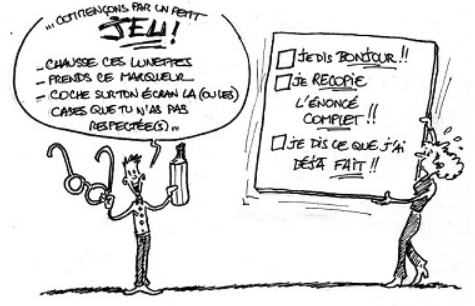 ... COMMENÇONS PAR UN PETIT
JEU!
- CHAUSSE CES LUNETTES
- PRENDS CE MARQUEUR
- COCHE SUR TON ÉCRAN LA (OU LES)
CASES QUE TU N'AS PAS
RESPECTÉE(S) ...
JE DIS BONJOUR !!
JE RECOPIE
L'ÉNONCÉ
COMPLET !!
JE DIS CE QUE J'AI
DÉJÀ FAIT !!